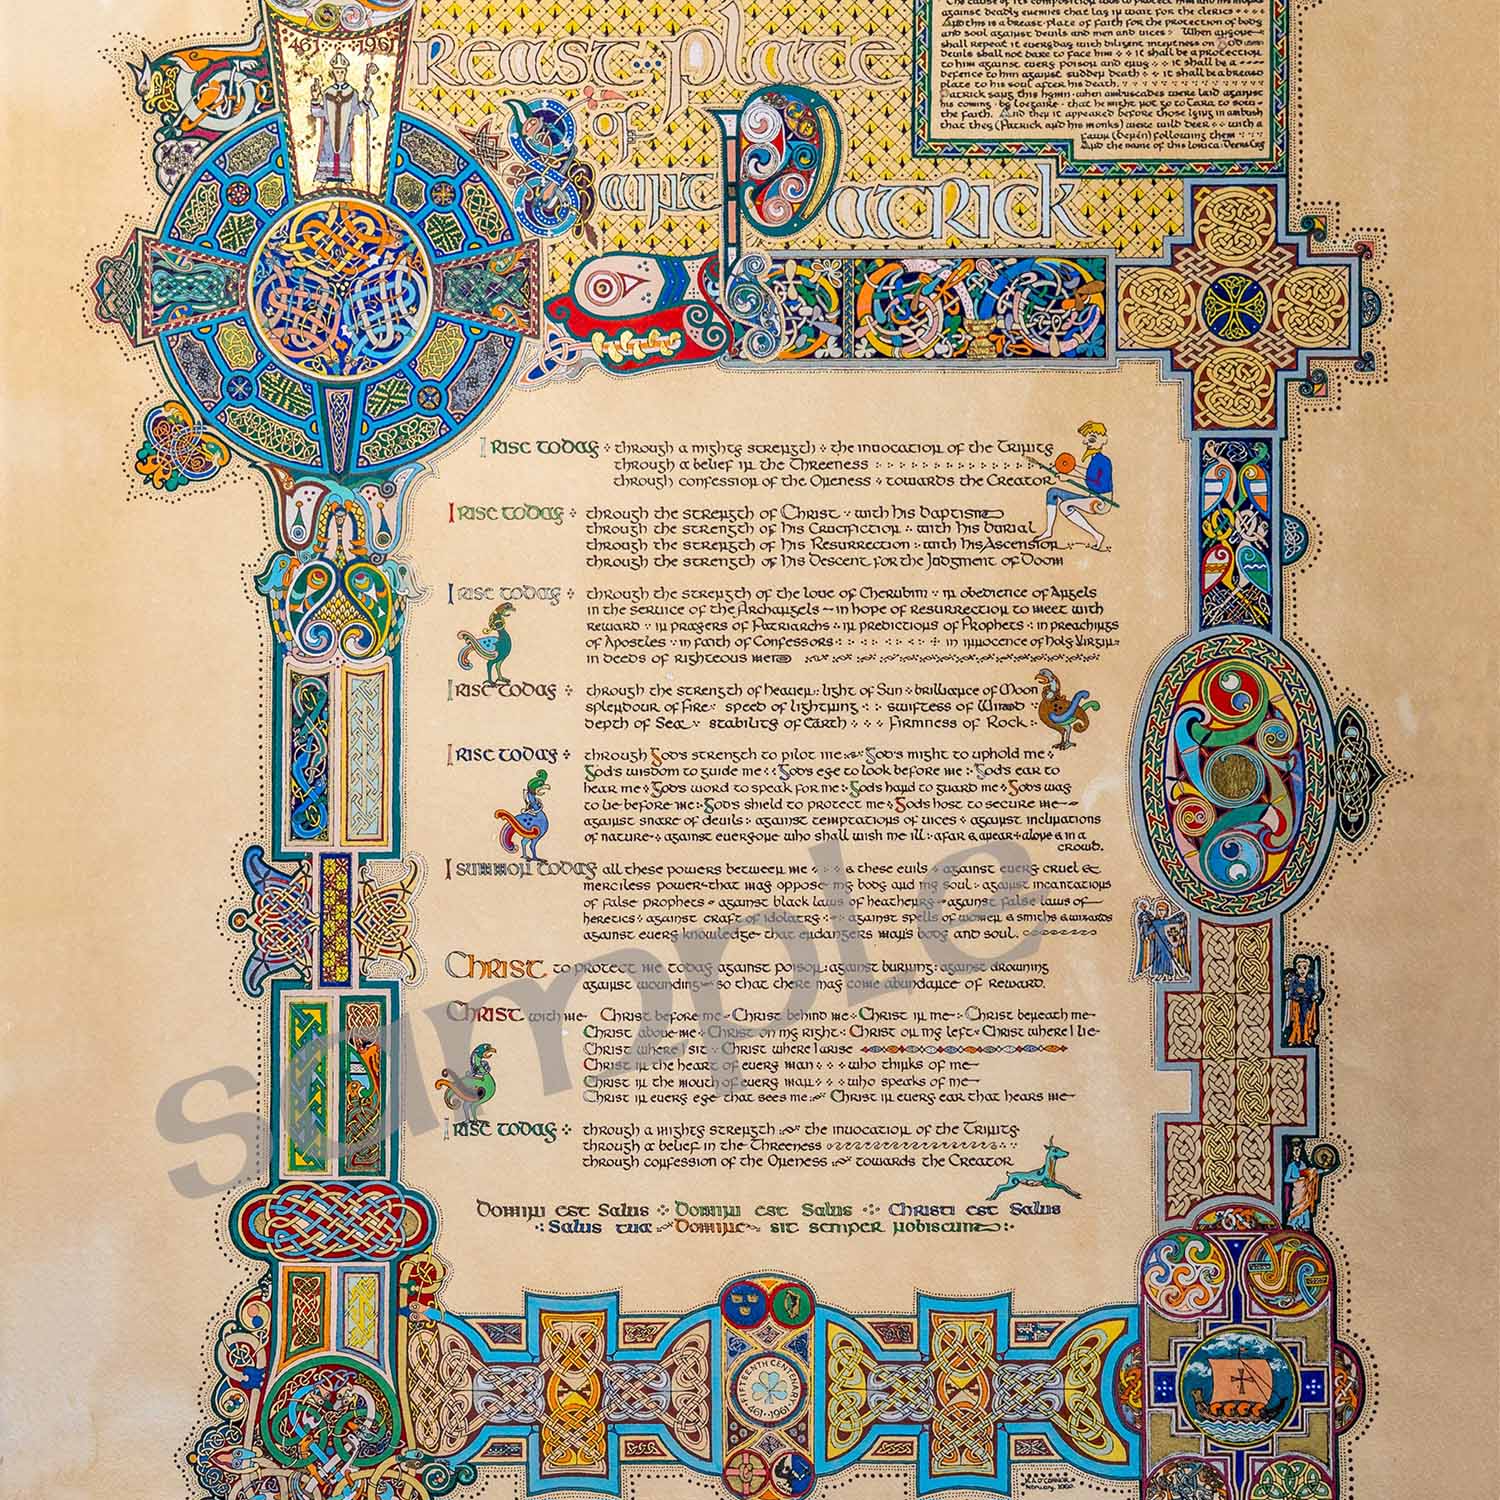 461 1961
Breast Plate
of
Saint Patrick
The cause of its composition was to protect him and his monks
against deadly enemies that lay in wait for the clerics
And this is a breast-plate of faith for the protection of body
and soul against devils and men and vices : When anyone
shall repeat it everyday with diligent intentness on God
devils shall not dare to face him it shall be a protection
to him against every poison and envy it shall be a
defence to him against sudden death it shall be a breast
plate to his soul after his death.
Patrick sang this hymn when ambuscades were laid against
his coming by Loegaire that he might not go to Tara to sow
the faith. And then it appeared before those lying in ambush
that they (Patrick and his monks) were wild deer with a
fawn (Benén) following them
And the name of this lorica: Deers Cry
I RISE TODAY through a mighty strength the invocation of the Trinity
through a belief in the Threeness
through confession of the Oneness towards the Creator
I RISE TODAY through the strength of Christ with his baptism
through the strength of his Crucifiction with his burial
through the strength of his Resurrection with his Ascension
through the strength of his Descent for the Judgment of Doom
I RISE TODAY through the strength of the love of Cherubim in obedience of Angels
in the service of the Archangels in hope of resurrection to meet with
reward in prayers of Patriarchs in predictions of Prophets in preachings
of Apostles in faith of Confessors in innocence of Holy Virgins
in deeds of righteous men
I RISE TODAY through the strength of heaven: light of Sun brilliance of Moon
splendour of Fire speed of lightning swiftness of Wind
depth of Sea stability of Earth Firmness of Rock
I RISE TODAY through God's strength to pilot me God's might to uphold me
God's wisdom to guide me God's eye to look before me God's ear to
hear me God's word to speak for me God's hand to guard me God's way
to lie before me God's shield to protect me God's host to secure me
against snare of devils against temptations of vices against inclinations
of nature against everyone who shall wish me ill afar & anear alone & in a
crowd.
I SUMMON TODAY all these powers between me & these evils against every cruel &
merciless power that may oppose my body and my soul against incantations
of false prophets against black laws of heathenry against false laws of
heretics against craft of idolatry against spells of women & smiths & wizards
against every knowledge that endangers man's body and soul.
CHRIST to protect me today against poison: against burning: against drowning
against wounding so that there may come abundance of reward.
CHRIST with me Christ before me Christ behind me Christ in me Christ beneath me
Christ above me Christ on my right Christ on my left Christ where I lie
Christ where I sit Christ where I arise
Christ in the heart of every man who thinks of me
Christ in the mouth of every man who speaks of me
Christ in every eye that sees me Christ in every ear that hears me
I RISE TODAY through a mighty strength the invocation of the Trinity
through a belief in the Threeness
through confession of the Oneness towards the Creator
Domini est Salus Domini est Salus Christi est Salus
Salus tua Domine sit semper nobiscum
FIFTEENTH CENTENARY
461 1961
sample